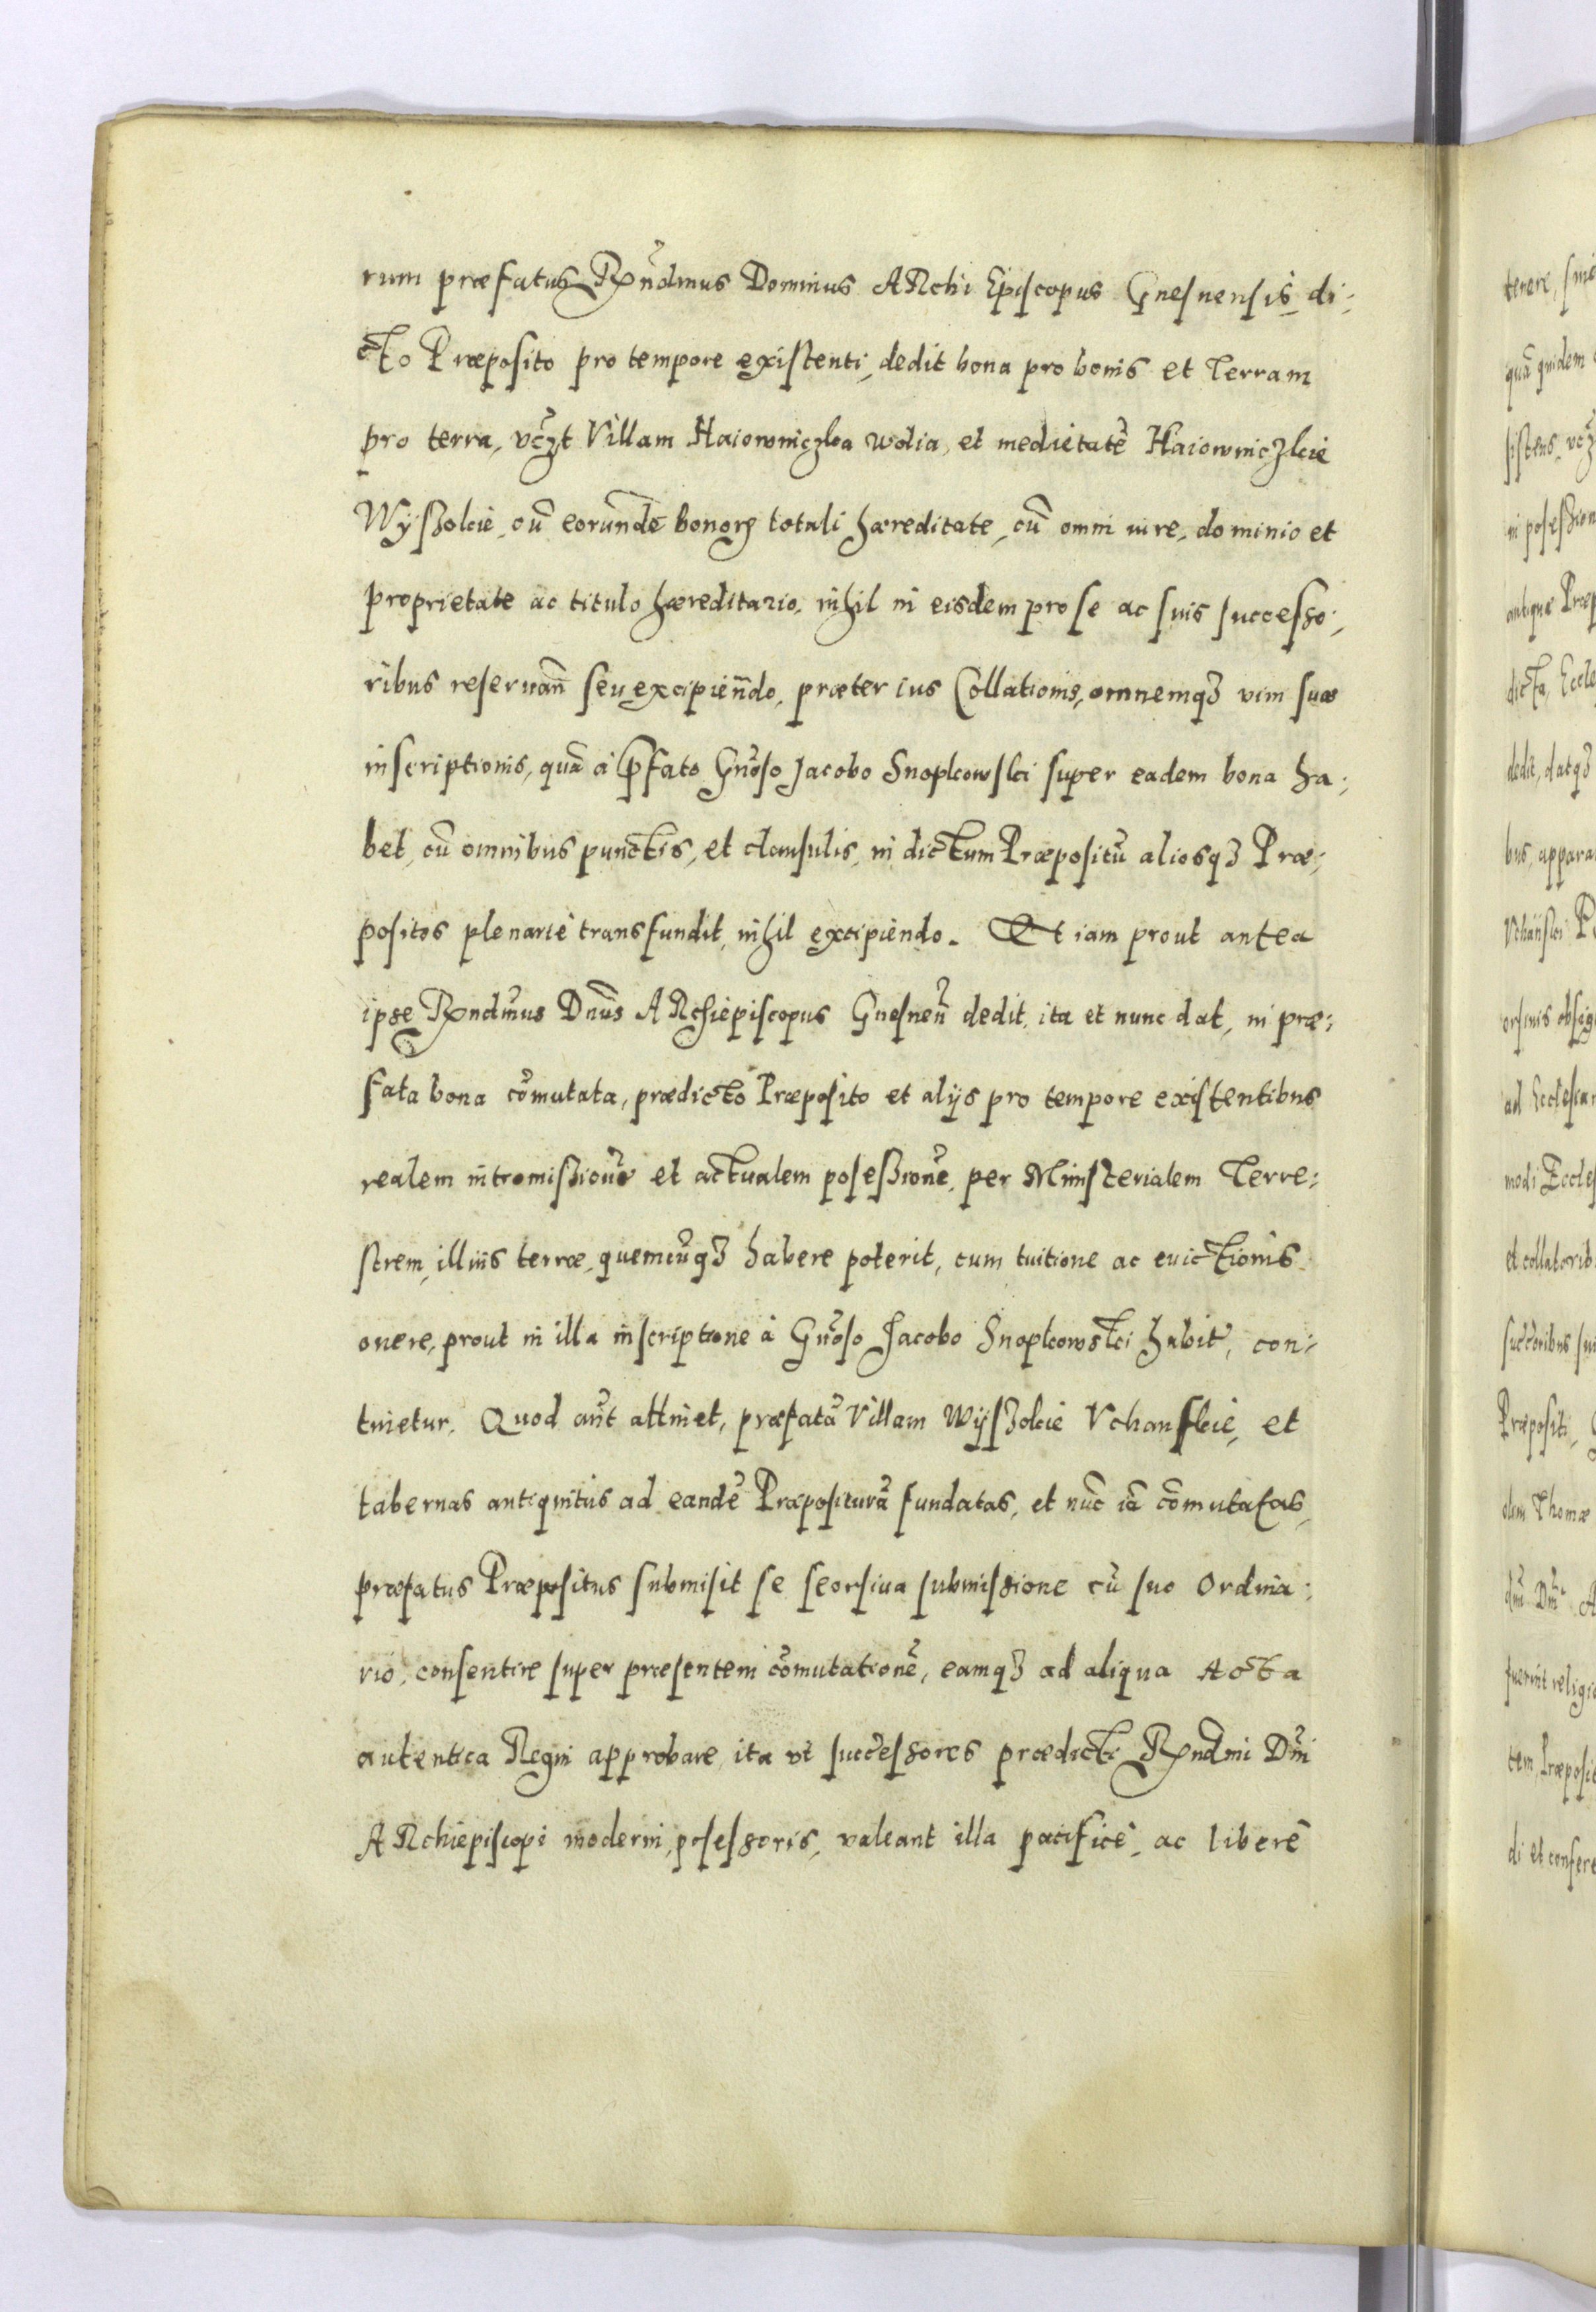 rum præfatus Rxndmus Dominus ARchi Episcopus Gnesnensis di:
cto Præposito pro tempore existenti, dedit bona pro bonis et Terram
pro terra, vczt Villam Haiowniczka wolia, et medietatẽ Haiowniczkie
Wyszokie, cũ eorundẽ bonorꝝ totali hæreditate, cũ omni iure, dominio et
proprietate ac titulo hæreditario, nihil in eisdem pro se ac suis successo:
ribus reseruan̄ seu excipiendo, præter ius Collationis, omnemqꝫ vim suæ
inscriptionis, quã à p̄fato Gnõso Jacobo Snopkowski super eadem bona ha:
bet, cũ omnibus punctis, et clausulis, in dictum Præpositũ aliosqꝫ Præ:
positos plenariè transfundit, nihil excipiendo. Et iam prout antea
ipse Rxndmus Dnus ARchiepiscopus Gnesnen̄ dedit, ita et nunc dat, in præ:
fata bona cõmutata, prædicto Præposito et alijs pro tempore existentibus
realem intromissionẽ et actualem posessionẽ, per Ministerialem Terre:
strem, illius terræ, quemcũqꝫ habere poterit, cum tuitione ac euictionis
onere, prout in illa inscriptione à Gnõso Jacobo Snopkowski habit̃, con:
tinetur. Quod aut̃ attinet, præfatã Villam Wyszokie Vchanskie, et
tabernas antiquitùs ad eandẽ Præpositurã fundatas, et nũc iã cõmutatas,
præfatus Præpositus submisit se seorsiua submissione cũ suo Ordina:
rio, consentire super præsentem cõmutationẽ, eamqꝫ ad aliqua Acta
autentica Regni approbare, ita vt successores prædicti Rxndmi Dni
ARchiepiscopi moderni, posessoris, valeant illa pacificè, ac liberè
tenere, suis
quã quidem
in posession
antiquæ Præp
dicta, Eccle
dedit, datqꝫ
bus, appara
Vchański
ad Ecclesiam
modi Eccles
et collatorib
Præpositi,
olim Thomæ
fuerint religio
tem, Præposit
di et confere